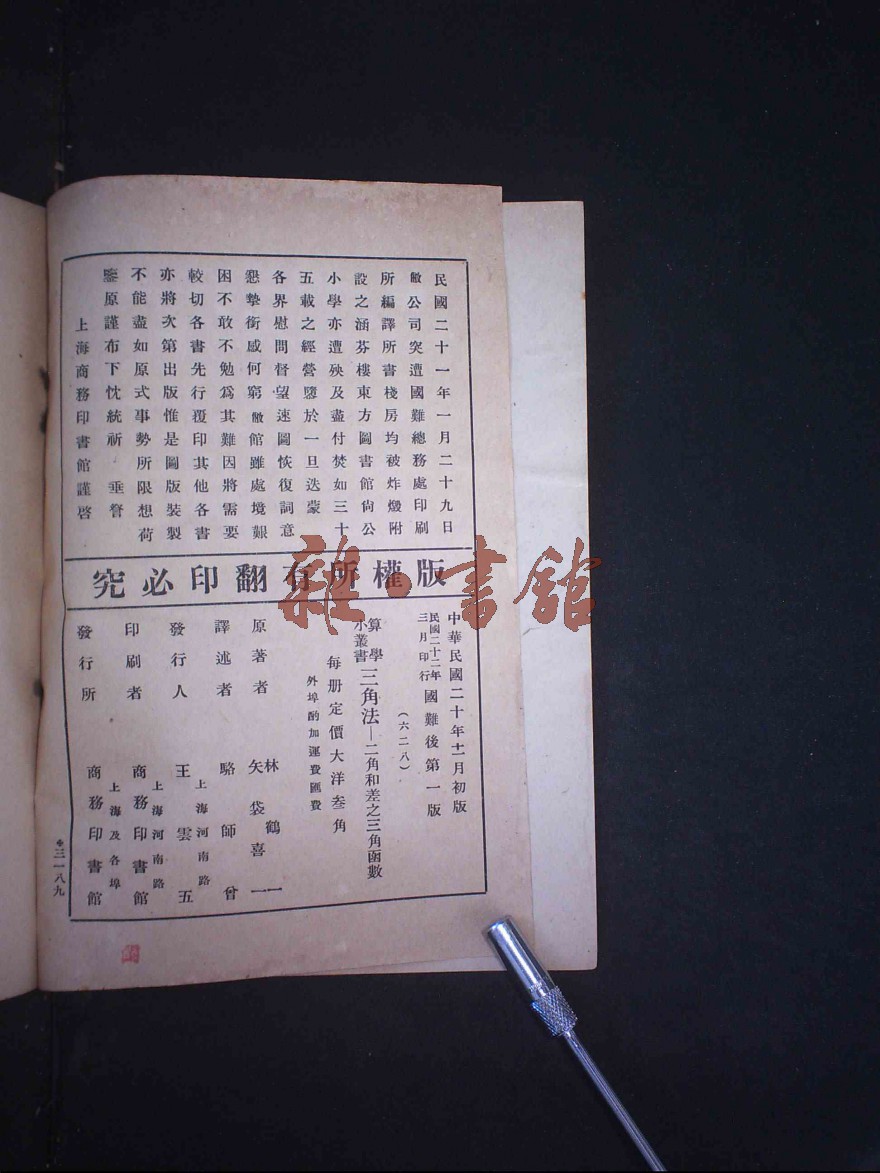 民國二十一年一月二十九日
敝公司突遭國難總務處印刷
所編譯所書棧房均被炸燬附
設之涵芬樓東方圖書館尙公
小學亦遭殃及盡付焚如三十
五載之經營隳於一旦迭蒙
各界慰問督望速圖恢復詞意
懇摯銜感何窮敝館雖處境艱
困不敢不勉爲其難因將需要
較切各書先行覆印其他各書
亦將次第出版惟是圖版裝製
不能盡如原式事勢所限想荷
鑒原謹布下忱統祈 垂詧
上海商務印書館謹啓
版權所有翻印必究
中華民國二十年十二月初版
民國二十二年三月印行 國難後第一版
(六二八)
算學小叢書 三角法—二角和差之三角函數
每册定價大洋叁角
外埠酌加運費匯費
原著者 林鶴一 矢袋喜一
譯述者 駱師曾
發行人 上海河南路 王雲五
印刷者 上海河南路 商務印書館
發行所 上海及各埠 商務印書館
三一八九
雜·書館